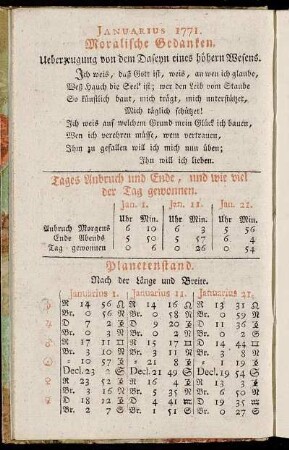 JANUARIUS 1771.
Moralische Gedanken.
Ueberzeugung von dem Daseyn eines höhern Wesens.
Ich weis, daß Gott ist, weis, an wen ich glaube,
Weß Hauch die Seel' ist; wer den Leib vom Staube
So künstlich baut, mich trägt, mich unterstützet,
Mich täglich schützet!
Ich weis auf welchem Grund mein Glück ich bauen,
Wen ich verehren müsse, wem vertrauen,
Ihm zu gefallen will ich mich nun üben;
Ihn will ich lieben.
Tages Anbruch und Ende, und wie viel
der Tag gewonnen.
Jan. 1. Jan. 11. Jan. 21.
Uhr Min. Uhr Min. Uhr Min.
Anbruch Morgens 6 10 6 3 5 56
Ende Abends 5 50 5 57 6 4
Tag gewonnen 0 6 0 26 0 54
Planetenstand.
Nach der Länge und Breite.
Januarius 1. Januarius 11. Januarius 21.
R 14 56 R 14 16 R 13 31
Br. 0 56 N Br. 0 58 N Br. 0 59 N
D 7 2 D 9 20 D 11 36
Br. 0 3 N Br. 0 4 N Br. 0 2 S
R 17 11 R 15 22 D 14 44
Br. 3 10 N Br. 3 11 N Br. 3 8 N
10 57 21 8 1 19
Decl. 23 2 S Decl. 21 49 S Decl. 19 54 S
R 23 52 R 16 4 R 13 3
Br. 3 16 N Br. 5 35 N Br. 6 35 N
D 18 12 D 4 21 D 19 41
Br. 2 7 S Br. 1 51 S Br. 0 27 S